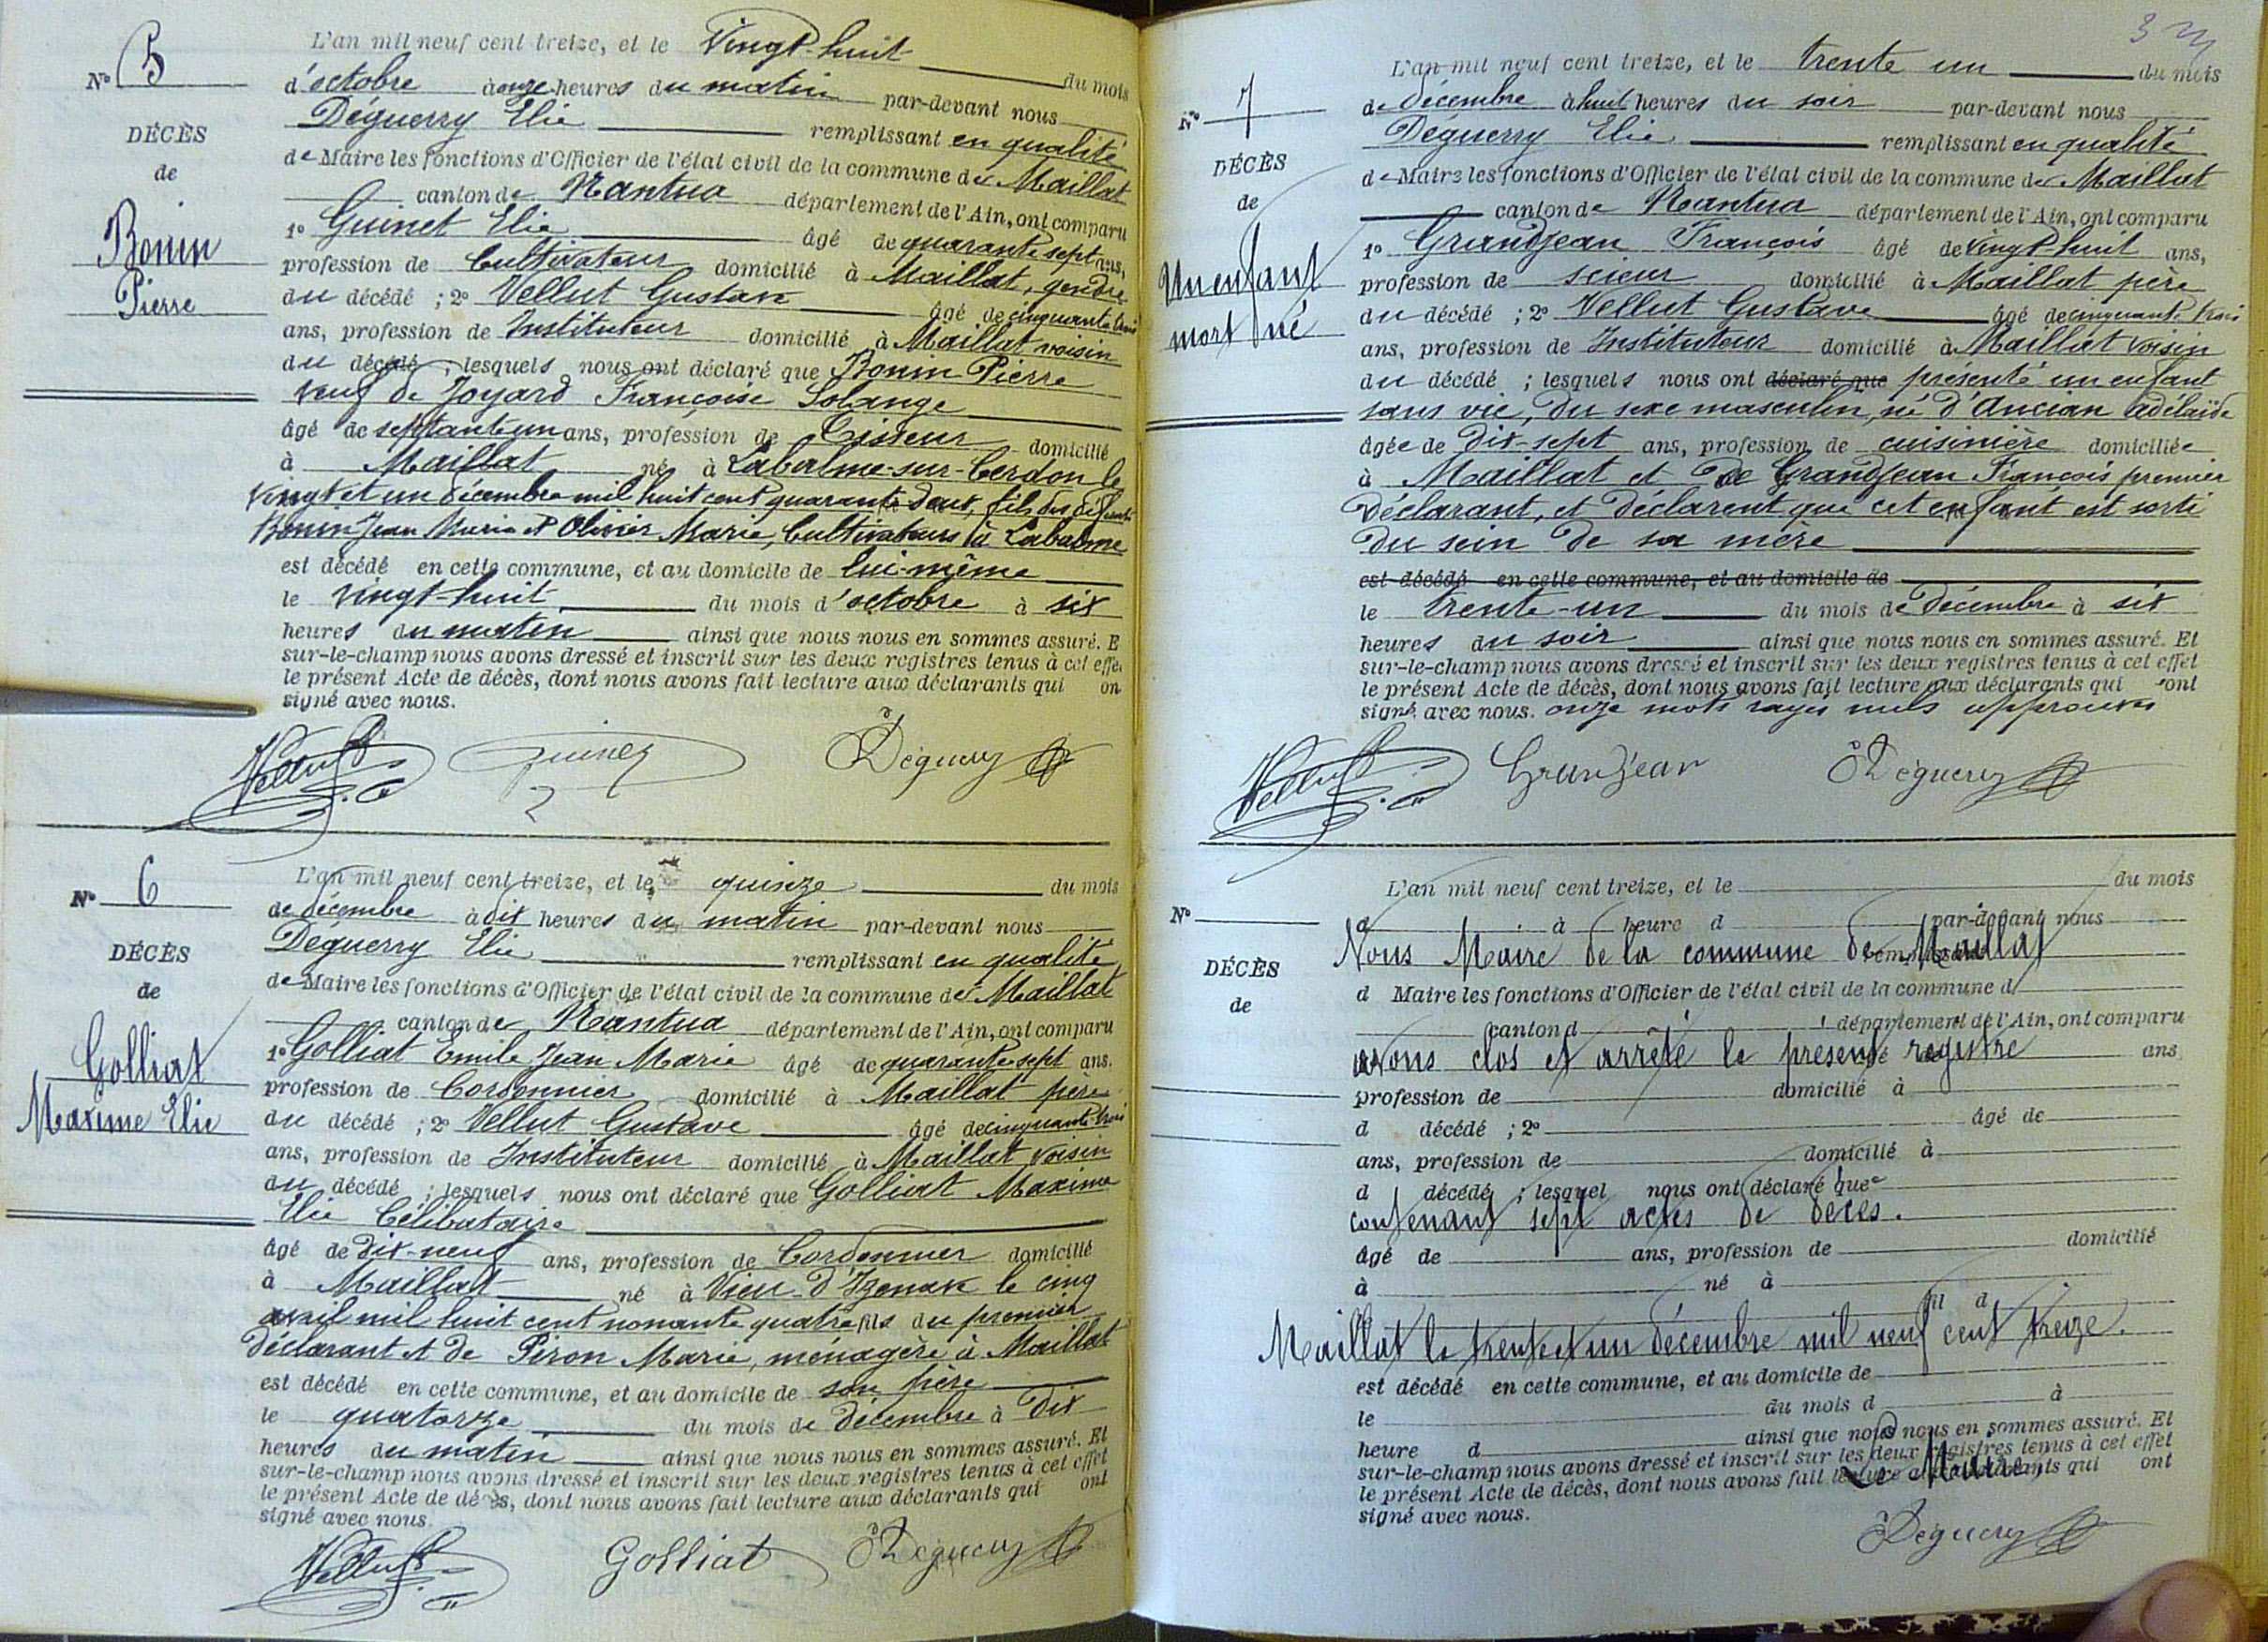 N° 5
DÉCÈS
de
Bonin
Pierre
L'an mil neuf cent treize, et le Vingt-huit du mois
d'octobre à onze heures du matin par-devant nous
Déguerry Elie remplissant en qualité
de Maire les fonctions d'Officier de l'état civil de la commune de Maillat
canton de Nantua département de l'Ain, ont comparu
1° Guinet Elie âgé de quarante sept ans,
profession de Cultivateur domicilié à Maillat, gendre
du décédé ; 2° Vellut Gustave âgé de cinquante trois
ans, profession de Instituteur domicilié à Maillat voisin
du décédé ; lesquels nous ont déclaré que Bonin Pierre
veuf de Joyard Françoise Solange
âgé de septante un ans, profession de Tisseur domicilié
à Maillat né à Labalme-sur-Cerdon le
vingt et un décembre mil huit cent quarante deux, fils des défunts
Bonin Jean Marie et Olivier Marie, Cultivateurs à Labalme
est décédé en cette commune, et au domicile de lui-même
le vingt-huit du mois d'octobre à six
heures du matin ainsi que nous nous en sommes assuré. E
sur-le-champ nous avons dressé et inscrit sur les deux registres tenus à cet effe
le présent Acte de décès, dont nous avons fait lecture aux déclarants qui on
signé avec nous.
Vellut Guinet Déguerry
N° 6
DÉCÈS
de
Golliat
Maxime Elie
L'an mil neuf cent treize, et le quinze du mois
de décembre à dix heures du matin par-devant nous
Déguerry Elie remplissant en qualité
de Maire les fonctions d'Officier de l'état civil de la commune de Maillat
canton de Nantua département de l'Ain, ont comparu
1° Golliat Emile Jean Marie âgé de quarante sept ans.
profession de Cordonnier domicilié à Maillat père
du décédé ; 2° Vellut Gustave âgé de cinquante trois
ans, profession de Instituteur domicilié à Maillat voisin
du décédé ; lesquels nous ont déclaré que Golliat Maxime
Elie Célibataire
âgé de dix-neuf ans, profession de Cordonnier domicilié
à Maillat né à Vieu d'Izenave le cinq
avril mil huit cent nonante quatre fils du premier
déclarant et de Piron Marie, ménagère à Maillat
est décédé en cette commune, et au domicile de son père
le quatorze du mois de décembre à dix
heures du matin ainsi que nous nous en sommes assuré. Et
sur-le-champ nous avons dressé et inscrit sur les deux registres tenus à cet effet
le présent Acte de décès, dont nous avons fait lecture aux déclarants qui ont
signé avec nous.
Vellut Golliat Déguerry
N° 7
DÉCÈS
de
Un enfant
mort né
L'an mil neuf cent treize, et le trente un du mois
de décembre à huit heures du soir par-devant nous
Déguerry Elie remplissant en qualité
de Maire les fonctions d'Officier de l'état civil de la commune de Maillat
canton de Nantua département de l'Ain, ont comparu
1° Grandjean François âgé de vingt huit ans,
profession de scieur domicilié à Maillat père
du décédé ; 2° Vellut Gustave âgé de cinquante trois
ans, profession de Instituteur domicilié à Maillat voisin
du décédé ; lesquels nous ont déclaré que présenté un enfant
sans vie, du sexe masculin, né d'Ancian adélaïde
âgée de dix-sept ans, profession de cuisinière domiciliée
à Maillat et de Grandjean François premier
Déclarant, et déclarent que cet enfant est sorti
du sein de sa mère
est décédé en cette commune, et au domicile de
le trente-un du mois de décembre à six
heures du soir ainsi que nous nous en sommes assuré. Et
sur-le-champ nous avons dressé et inscrit sur les deux registres tenus à cet effet
le présent Acte de décès, dont nous avons fait lecture aux déclarants qui ont
signé avec nous. onze mots rayés nuls approuvés
Vellut Grandjean Déguerry
N°
DÉCÈS
de
L'an mil neuf cent treize, et le du mois
d à heure d par-devant nous
Nous Maire de la commune de Maillat
d Maire les fonctions d'Officier de l'état civil de la commune d
canton d département de l'Ain, ont comparu
avons clos et arrêté le présent registre ans
profession de domicilié à
d décédé ; 2° âgé de
ans, profession de domicilié à
d décédé ; lesquel nous ont déclaré que
contenant sept actes de décès.
âgé de ans, profession de domicilié
à né à
fil d
Maillat le trente et un décembre mil neuf cent treize.
est décédé en cette commune, et au domicile de
le du mois d à
heure d ainsi que nous nous en sommes assuré. Et
sur-le-champ nous avons dressé et inscrit sur les deux registres tenus à cet effet
Le Maire,
le présent Acte de décès, dont nous avons fait lecture aux déclarants qui ont
signé avec nous.
Déguerry